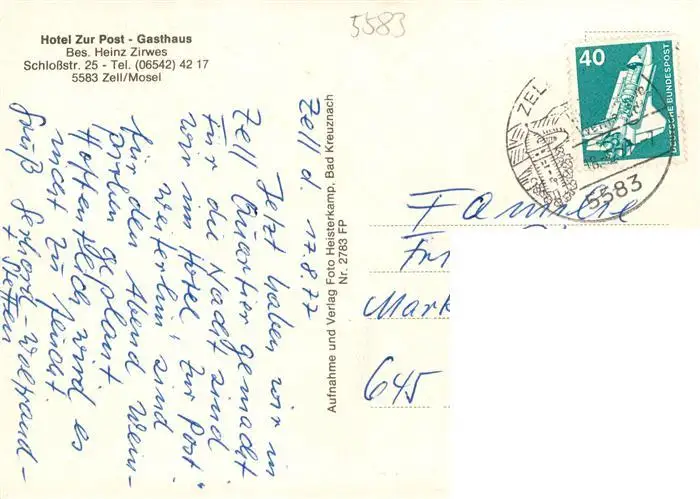 5583
Hotel Zur Post - Gasthaus
Bes. Heinz Zirwes
Schloßstr. 25 - Tel. (06542) 42 17
5583 Zell/Mosel
40
DEUTSCHE BUNDESPOST
ZEL
5583
Zell d. 17.8.77
Jetzt haben wir in
Zell Quartier gemacht
Für die Nacht sind
wir im Hotel "Zur Post"
weiterhin sind
für den Abend Wein-
proben geplant
Hoffentlich wird es
nicht zu feucht
Gruß Gerhard - Woltraud -
+ Steffen
Aufnahme und Verlag Foto Heisterkamp, Bad Kreuznach
Nr. 2783 FP
Familie
Fri
Mark
645